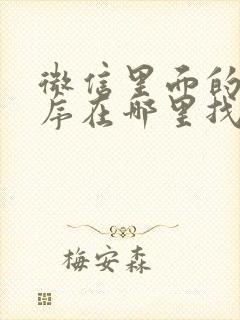 微信里面的
序在哪里找
梅安森